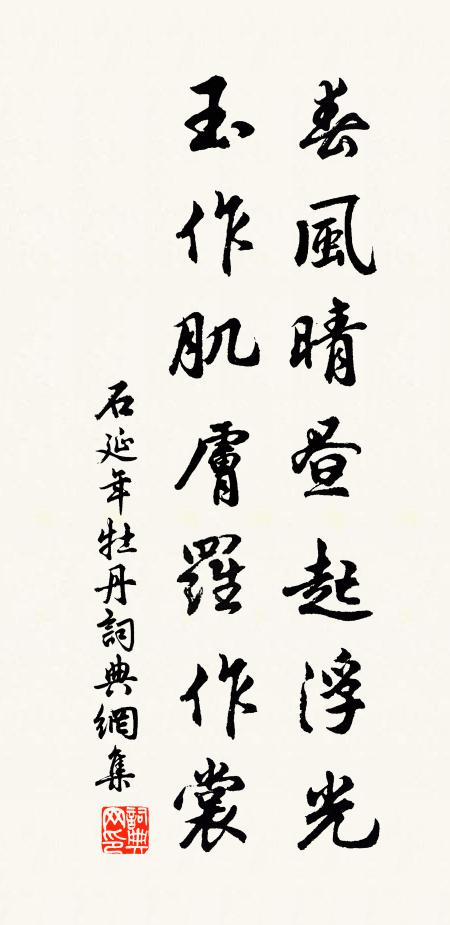 春風晴晝起浮光
玉作肌膚羅作裳
石延年牡丹詞典網集
詞典网印